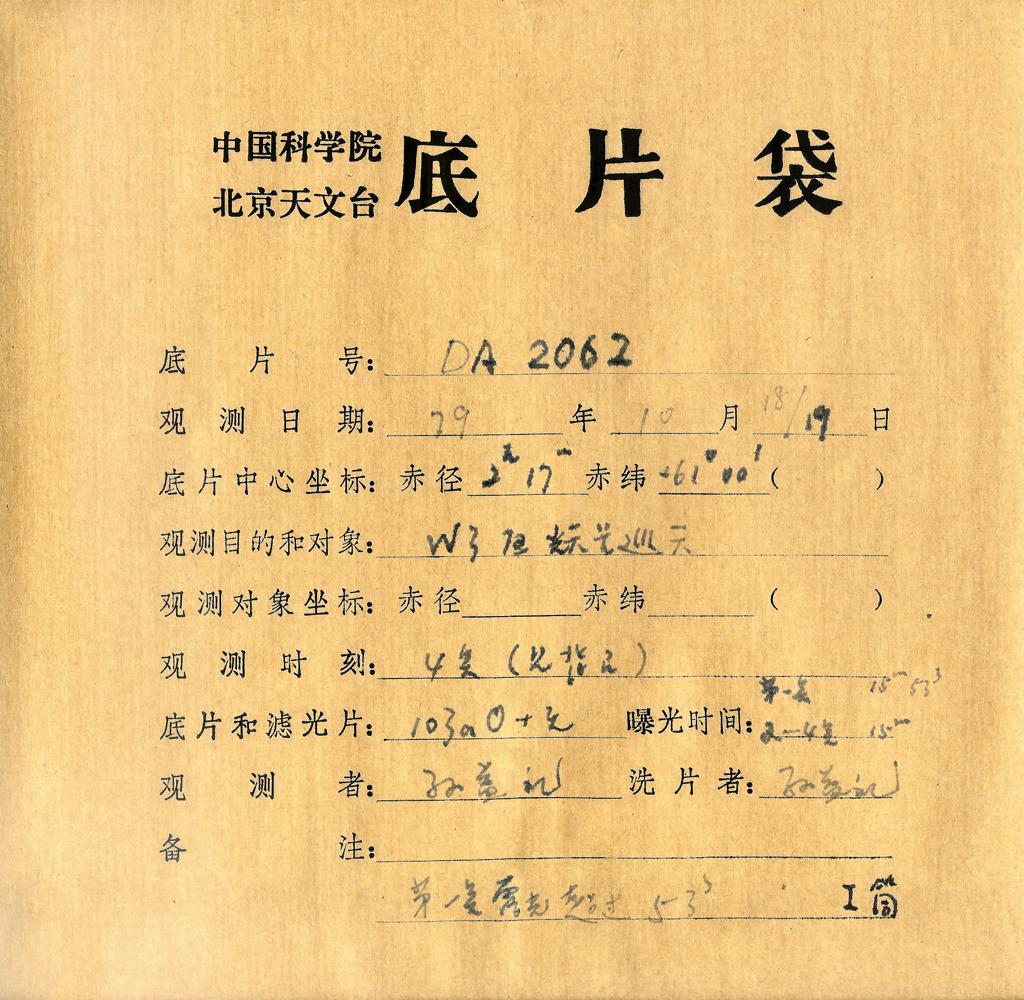 中国科学院
北京天文台
底片袋
底片号: DA 2062
观测日期: 79 年 10 月 18/19 日
底片中心坐标: 赤径 2h 17m 赤纬 +61° 00′ ( )
观测目的和对象: W3 巡天
观测对象坐标: 赤径 赤纬 ( )
观测时刻: 4 (见背面)
第一 15m 53s
底片和滤光片: 103aO+无 曝光时间: 2-4 15m
观测者: 孙益礼 洗片者: 孙益礼
备注:
第一 露光超过 53s I 筒